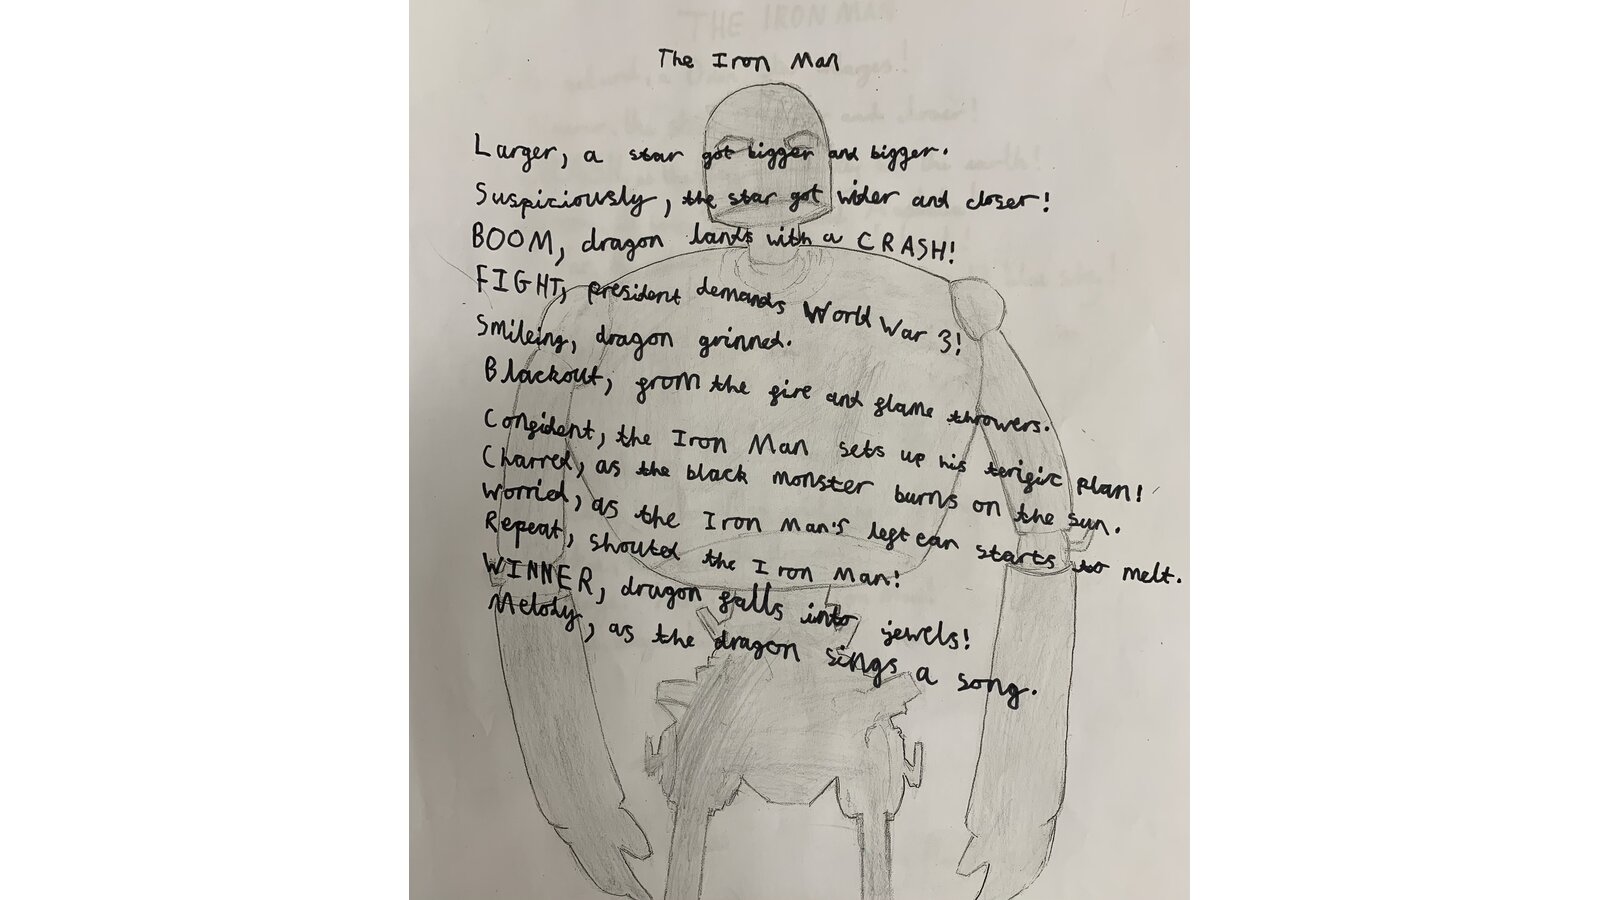 The Iron Man
Larger, a star got bigger and bigger.
Suspiciously, the star got wider and closer!
BOOM, dragon lands with a CRASH!
FIGHT, president demands World War 3!
Smileing, dragon grinned.
Blackout, from the fire and flame throwers.
Confident, the Iron Man sets up his terific plan!
Charred, as the black monster burns on the sun.
Worried, as the Iron Man's left ear starts to melt.
Repeat, shouted the Iron Man!
WINNER, dragon falls into jewels!
Melody, as the dragon sings a song.